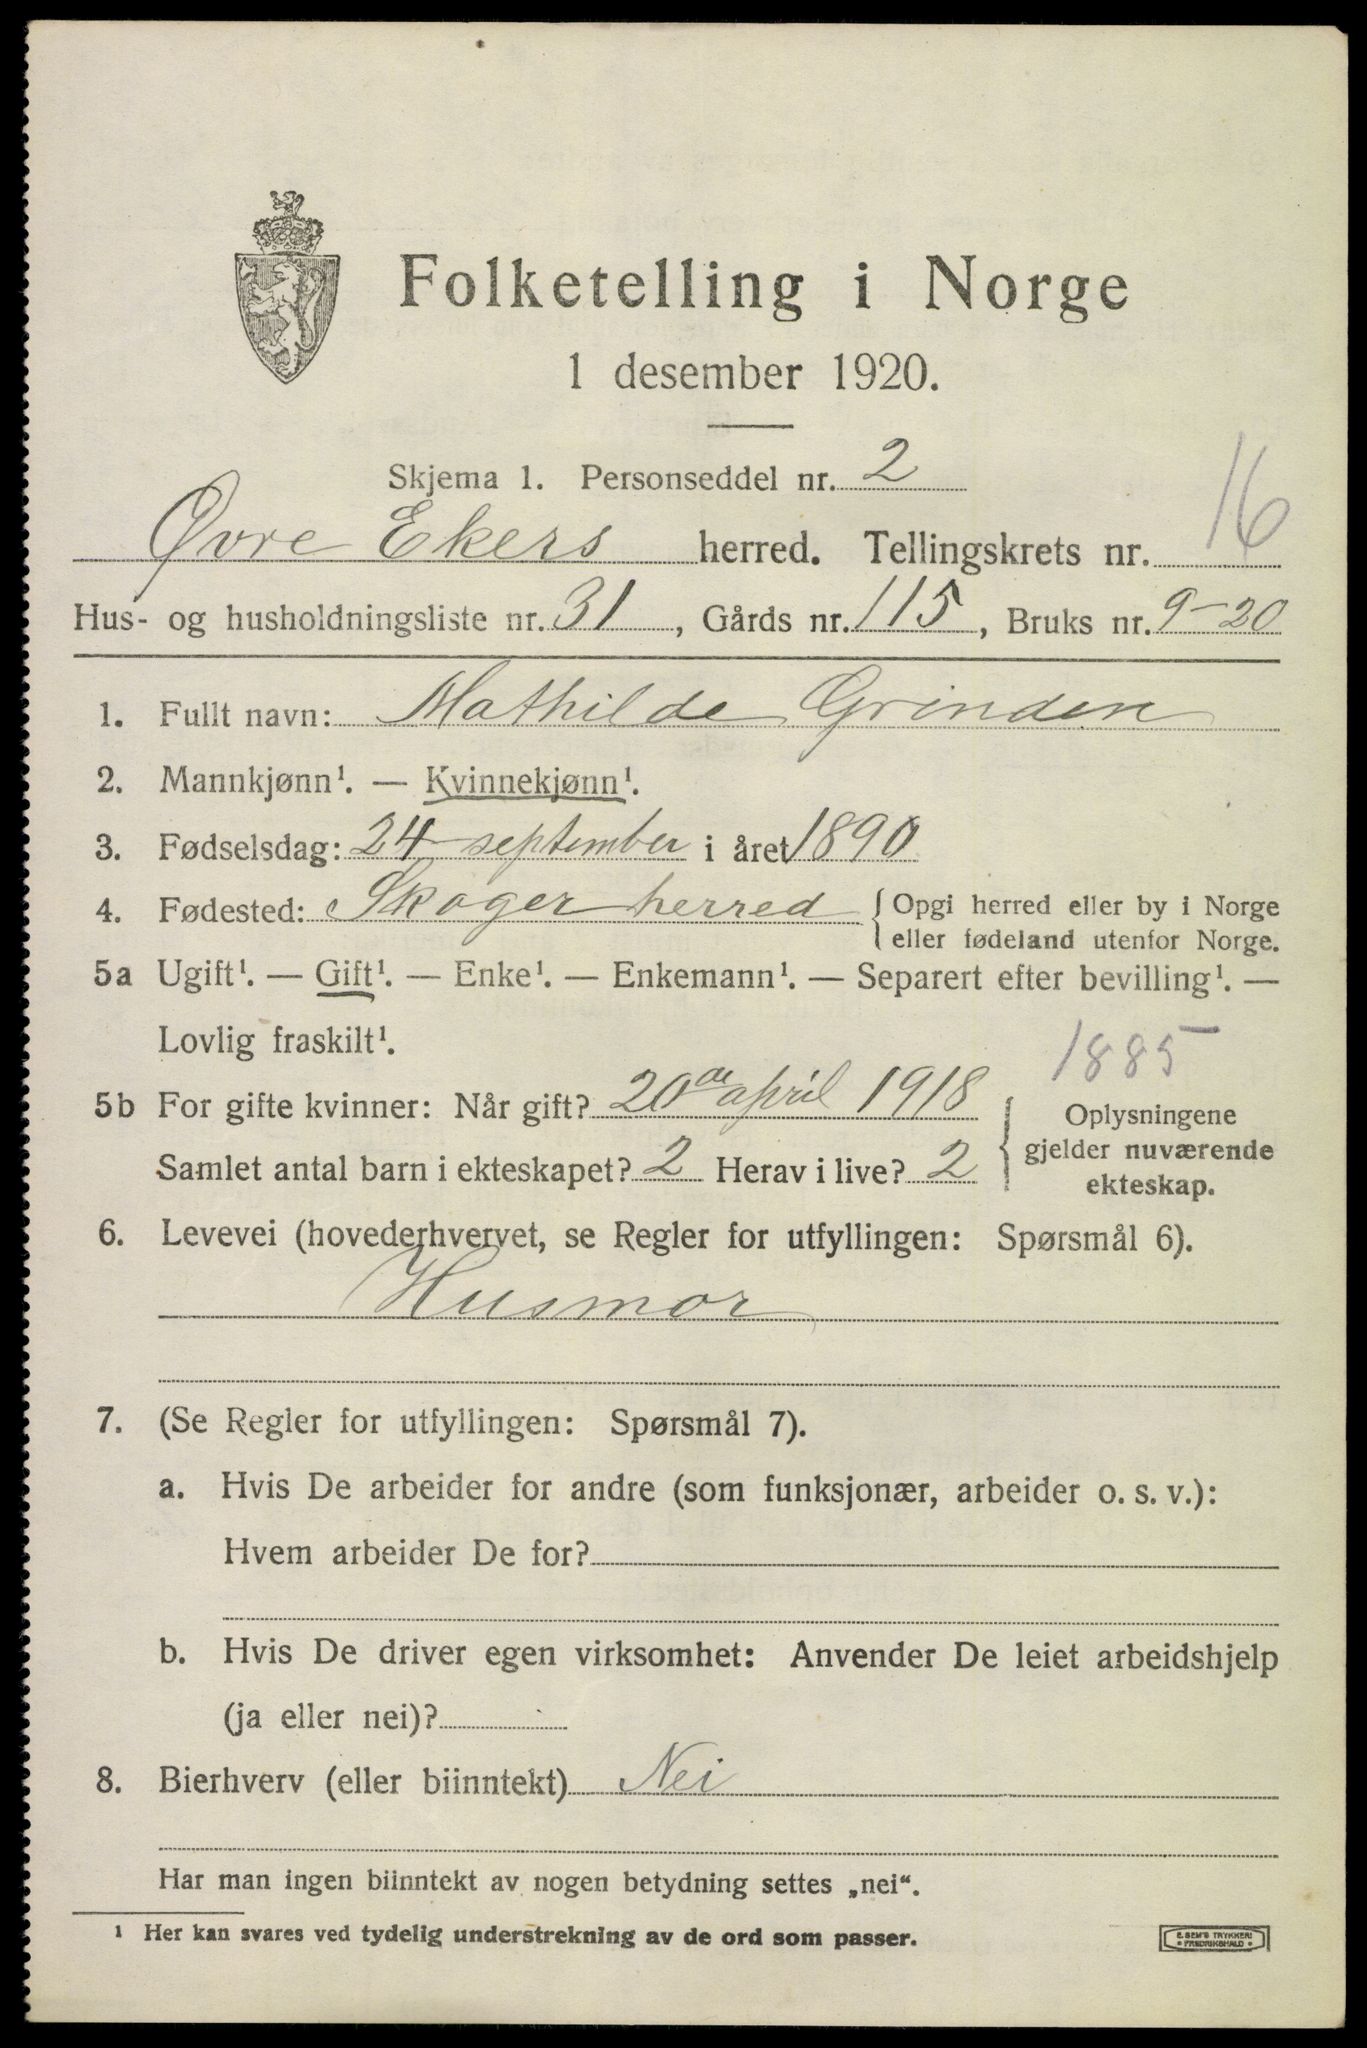 Folketelling i Norge
1 desember 1920.
Skjema 1. Personseddel nr. 2
Øvre Ekers herred. Tellingskrets nr. 16
Hus- og husholdningsliste nr. 31, Gårds nr. 115, Bruks nr. 9-20
1. Fullt navn: Mathilde Grinden
2. Mannkjønn¹. — Kvinnekjønn¹.
3. Fødselsdag: 24 september i året 1890
4. Fødested: Skoger herred { Opgi herred eller by i Norge
eller fødeland utenfor Norge.
5a Ugift¹. — Gift¹. — Enke¹. — Enkemann¹. — Separert efter bevilling¹. —
Lovlig fraskilt¹.
1885
5b For gifte kvinner: Når gift? 20de april 1918
Samlet antal barn i ekteskapet? 2 Herav i live? 2
{ Oplysningene
gjelder nuværende
ekteskap.
6. Levevei (hovederhvervet, se Regler for utfyllingen: Spørsmål 6).
Husmor
7. (Se Regler for utfyllingen: Spørsmål 7).
a. Hvis De arbeider for andre (som funksjonær, arbeider o. s. v.):
Hvem arbeider De for?
b. Hvis De driver egen virksomhet: Anvender De leiet arbeidshjelp
(ja eller nei)?
8. Bierhverv (eller biinntekt) Nei
Har man ingen biinntekt av nogen betydning settes „nei“.
¹ Her kan svares ved tydelig understrekning av de ord som passer.
E. SEM'S TRYKKERI
FREDRIKSHALD